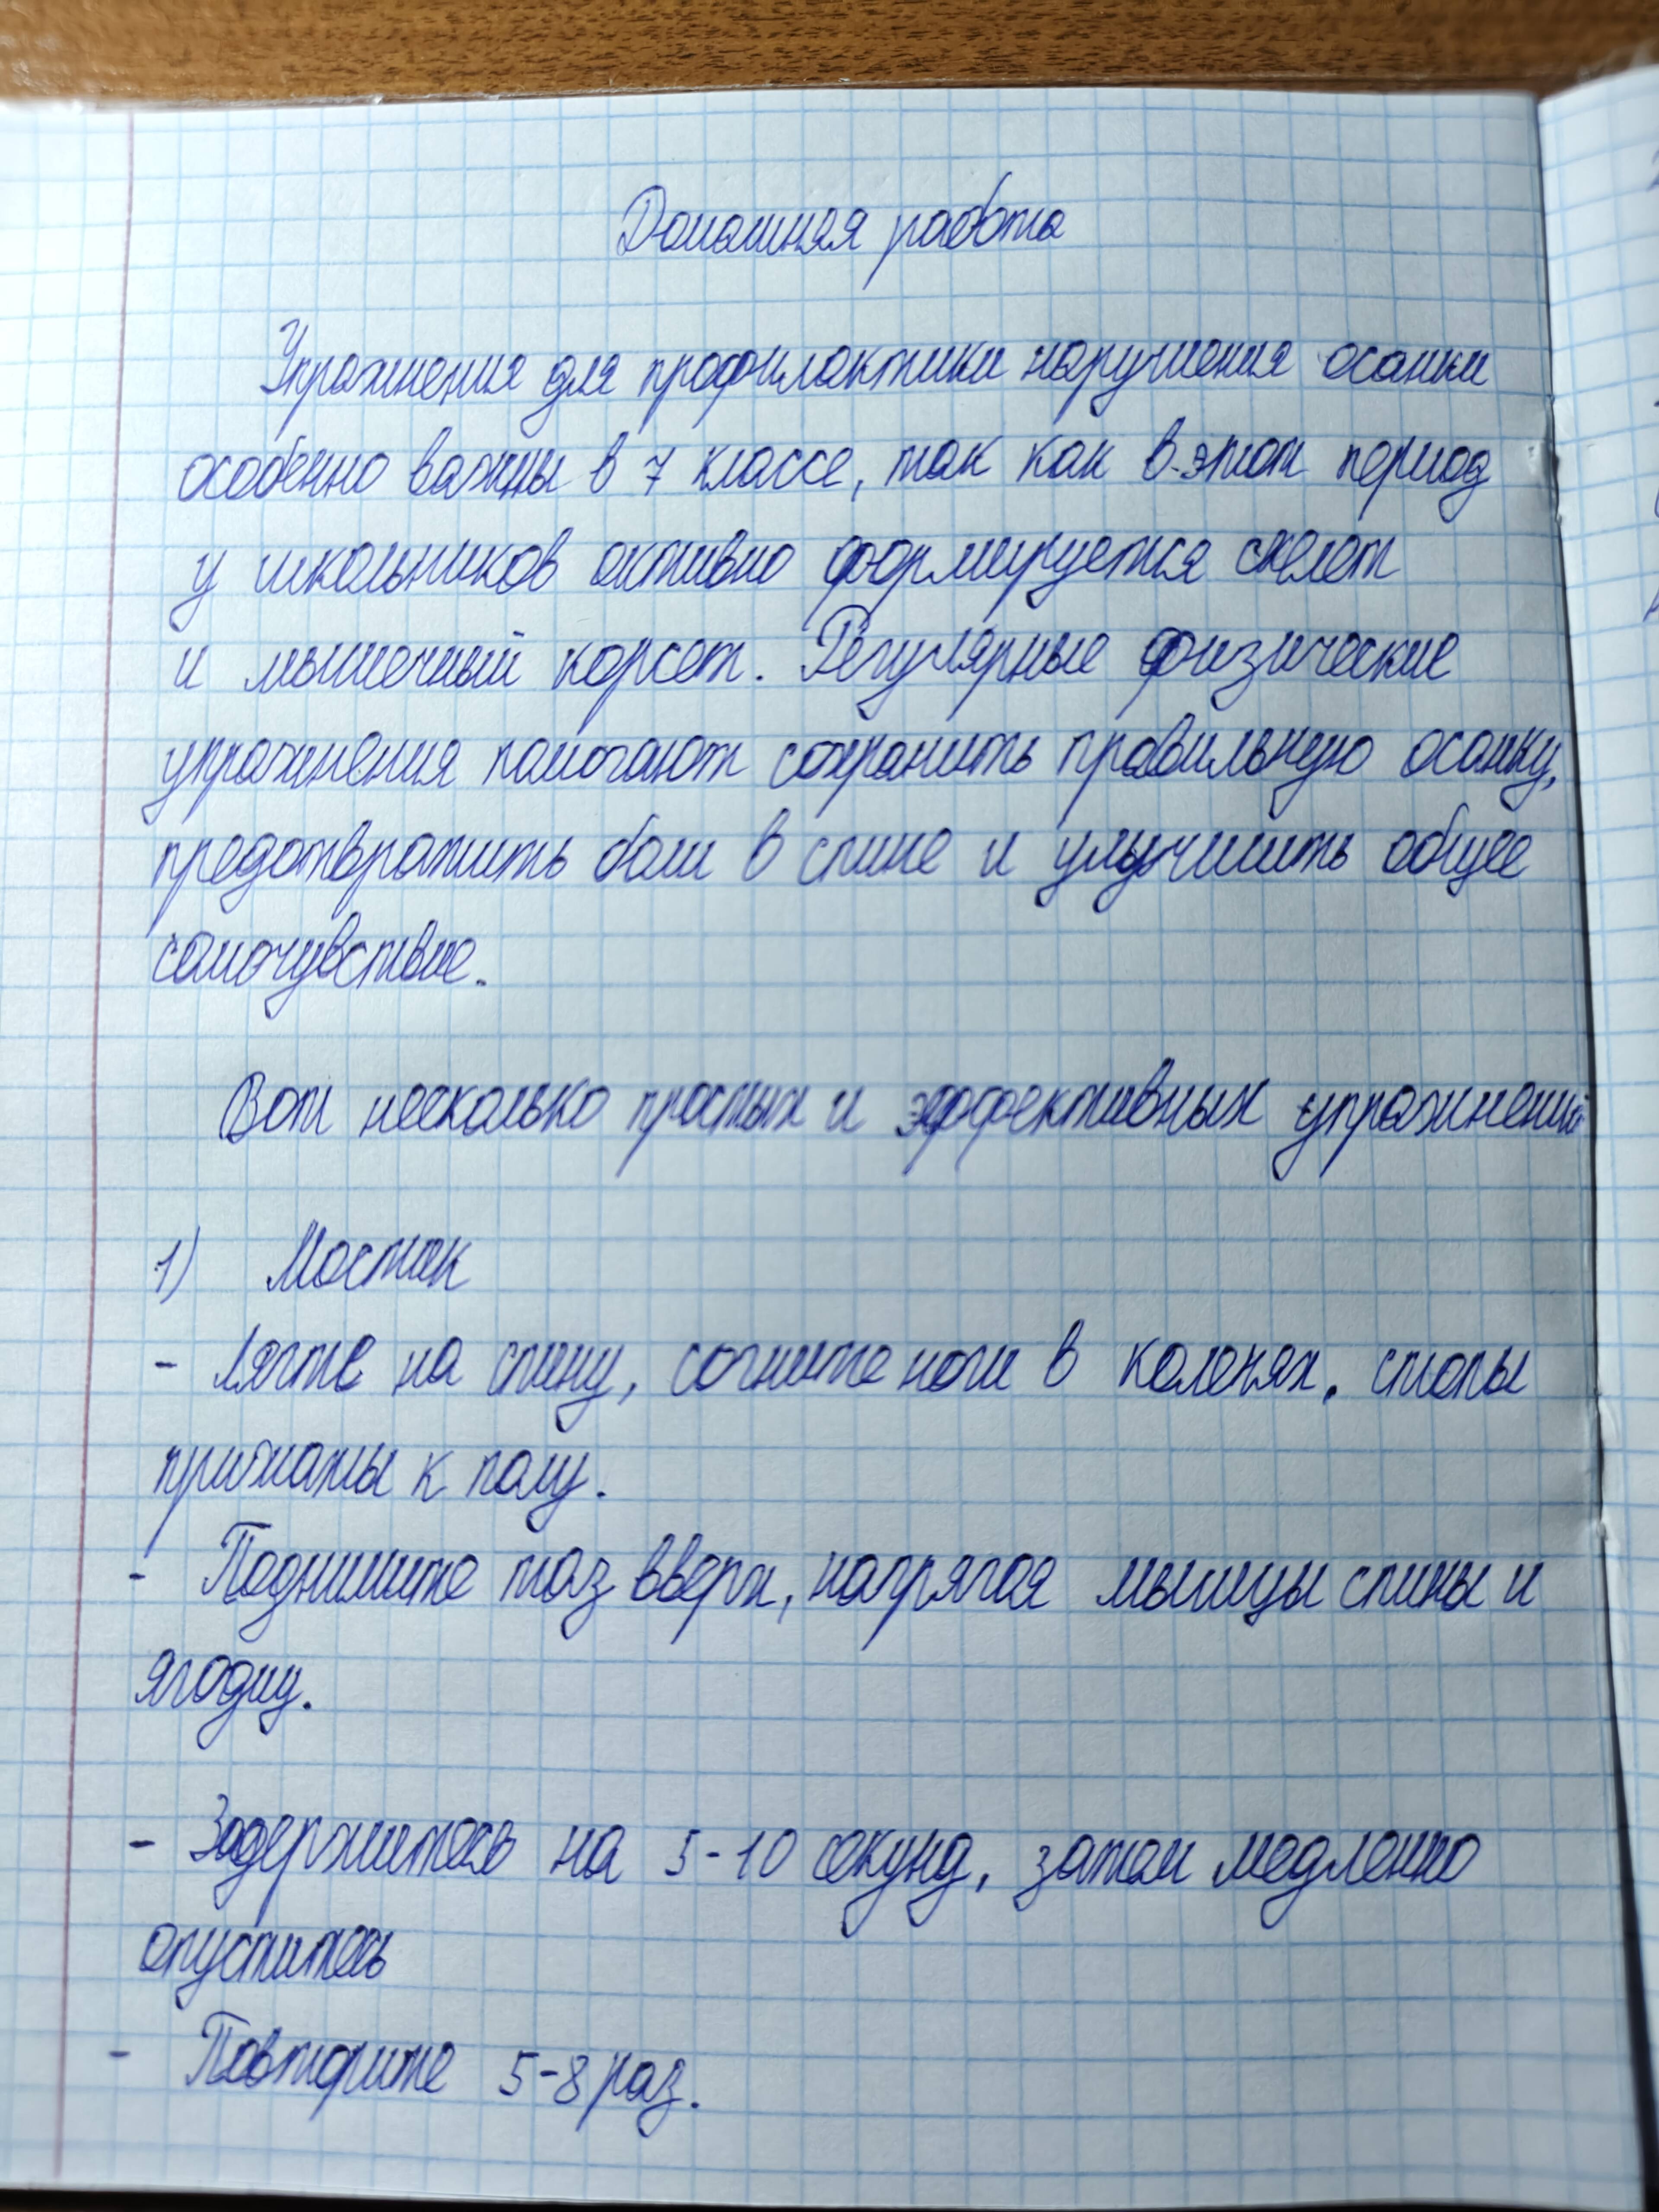 Домашняя работа
Упражнения для профилактики нарушения осанки
особенно важны в 7 классе, так как в этот период
у школьников активно формируется скелет
и мышечный корсет. Регулярные физические
упражнения помогают сохранить правильную осанку,
предотвратить боли в спине и улучшить общее
самочувствие.
Вот несколько простых и эффективных упражнений
1) Мостик
- Лягте на спину, согните ноги в коленях, стопы
прижаты к полу.
- Поднимите таз вверх, напрягая мышцы спины и
ягодиц.
- Задержитесь на 5-10 секунд, затем медленно
опуститесь
- Повторите 5-8 раз.